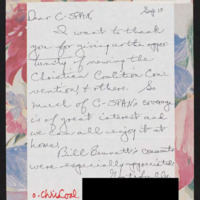 Dear C-SPAN, Sep. 10
I want to thank
you for giving us the oppor
tunity of viewing the
Christian Coalition Con
ventions & others. So
much of C-SPAN's coverage
is of great interest and
we have all enjoy it at
home.
Bill Bennett's comments
were especially appreciated.